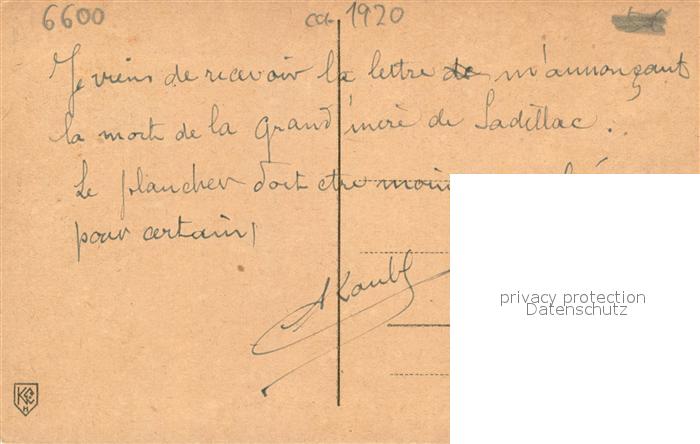 6600 ca. 1920
Je viens de recevoir la lettre de m'annonçant
la mort de la grand'mère de Sadillac.
Le plancher doit etre moin
pour certain,
privacy protection
Datenschutz